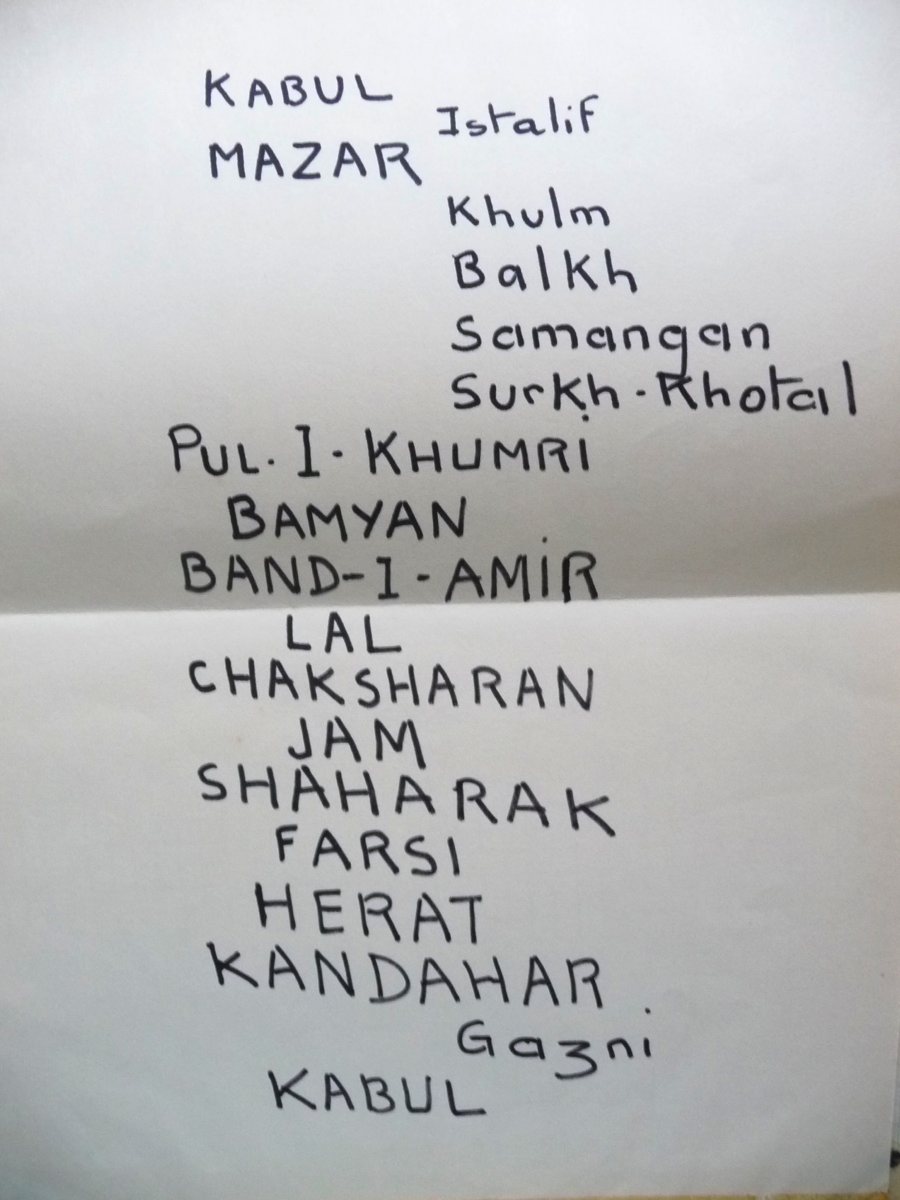 KABUL
Istalif
MAZAR
Khulm
Balkh
Samangan
Surkh-Khotal
PUL.I-KHUMRI
BAMYAN
BAND-I-AMIR
LAL
CHAKSHARAN
JAM
SHAHARAK
FARSI
HERAT
KANDAHAR
Gazni
KABUL